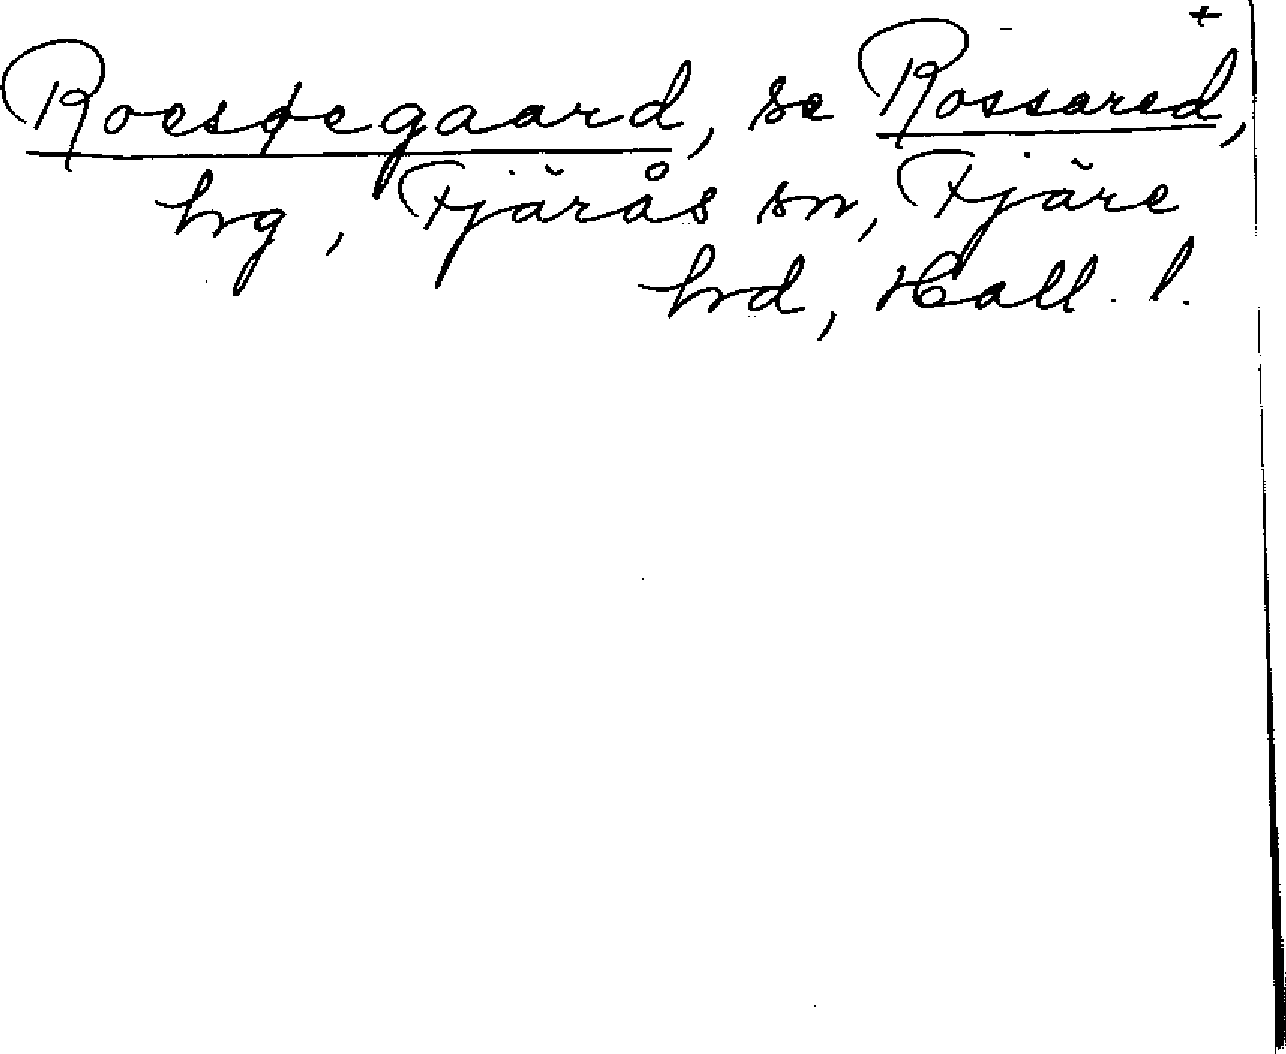 +
Roesøegaard, se Rossared,
hg, Fjärås sn, Fjäre
hd, Hall. l.